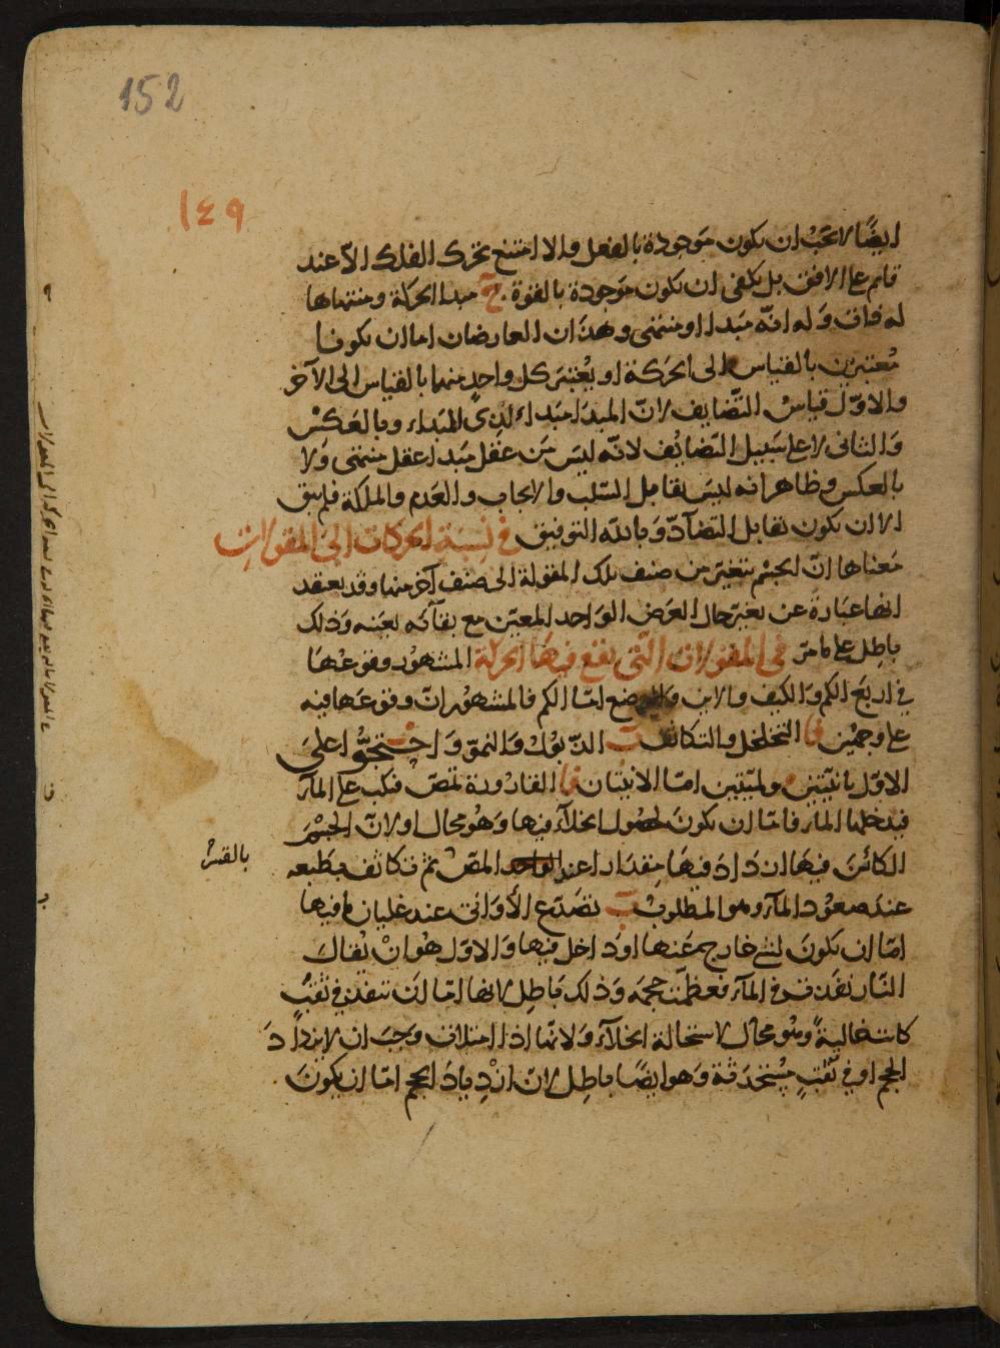 152
١٤٩
ايضًا لا يجب ان يكون موجودة بالفعل والا امتنع تحرك الفلك الا عند
قايم على الافق بل يكفى ان يكون موجودة بالقوة مبدا الحركة ومنتهاها
له ذات وله انه مبدا او منتهى وهذان العارضان اما ان يكونا
معتبرين بالقياس الى الحركة او يعتبر كل واحد منهما بالقياس الى الآخر
والاول قياس التضايف لان المبدا مبداء لذى المبداء وبالعكس
والثانى لا على سبيل التضايف لانه ليس من عقل مبدا عقل منتهى ولا
بالعكس وظاهر انه ليس تقابل السلب والايجاب والعدم والملكة فلم يبق
الا ان يكون تقابل التضآد وبالله التوفيق في نسبة الحركات الى المقولات
معناها ان الجسم يتغير من صنف تلك المقولة الى صنف آخر منها وقد يعتقد
انها عبارة عن تغير حال العرض الواحد المعين مع بقآئه بعينه وذلك
باطل على ما مر فى المقولات التى تقع فيها الحركة المشهور وقوعها
في اربع الكم والكيف والاين والوضع اما الكم فالمشهور ان وقوعها فيه
على وجهين ا التخلخل والتكاثف ب الذبول والنمو واحتجوا على
الاول بانيتين ولميتين اما الانيتان ا القارورة تمص فتكب على المآء
فيدخلها المآء فاما ان يكون لحصول الخلآء فيها وهو محال او لان الجسم
الكائن فيها ازداد فيها مقدارا عند المص ثم تكاثف بطبعه
بالقسر
عند صعود المآء وهو المطلوب ب تصدع الأوانى عند غليان ما فيها
اما ان يكون لشئ خارج عنها او داخل فيها والاول هو ان يقال
النار نفذت في المآء فعظمت حجمه وذلك باطل لانها اما ان تنفذ في ثقب
كانت خالية وهو محال لاستحالة الخلآء ولانها اذا امتلات وجب ان لا يزداد
الحجم او في ثقب مستحدثة وهو ايضًا باطل لان ازدياد الحجم اما ان يكون